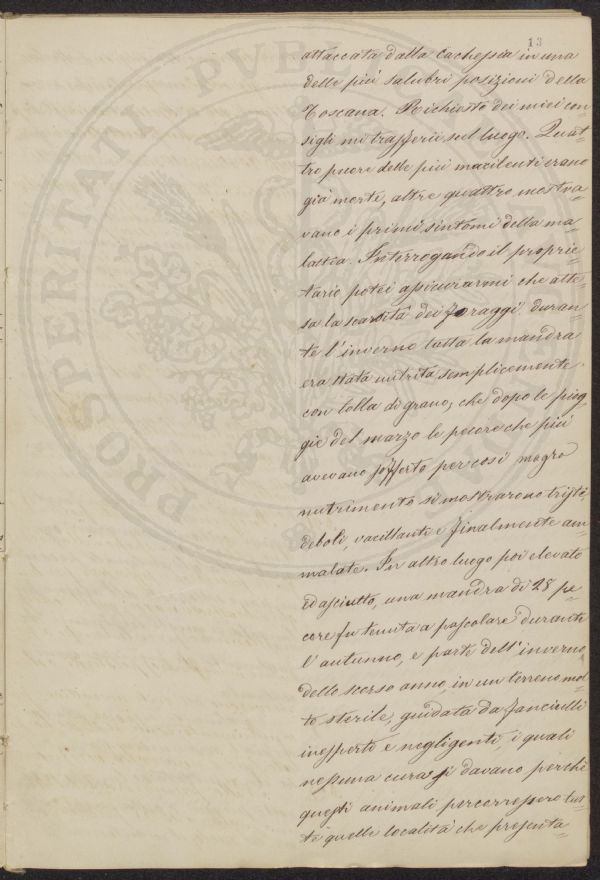 13
attaccata dalla Cachessia in una
delle più salubri posizioni della
Toscana. Richiesto dei miei con=
sigli mi trasferii sul luogo. Quat=
tro pecore delle più macilenti erano
già morte, altre quattro mostra=
vano i primi sintomi della ma=
lattia. Interrogando il proprie=
tario potei assicurarmi che atte=
sa la scarsità dei foraggi duran=
te l'inverno tutta la mandra
era stata nutrita semplicemente
con lolla di grano, che dopo le piog=
gie del marzo le pecore che più
avevano sofferto per così magro
nutrimento si mostrarono tristi,
deboli, vacillanti e finalmente am=
malate. In altro luogo poi elevato
ed asciutto, una mandra di 28 pe=
core fu tenuta a pascolare durante
l'autunno, e parte dell'inverno
dello scorso anno, in un terreno mol=
to sterile, guidata da fanciulli
inesperti e negligenti, i quali
nessuna cura si davano perchè
questi animali percorressero tut=
te quelle località che presenta=
PROSPERITATI PVBL